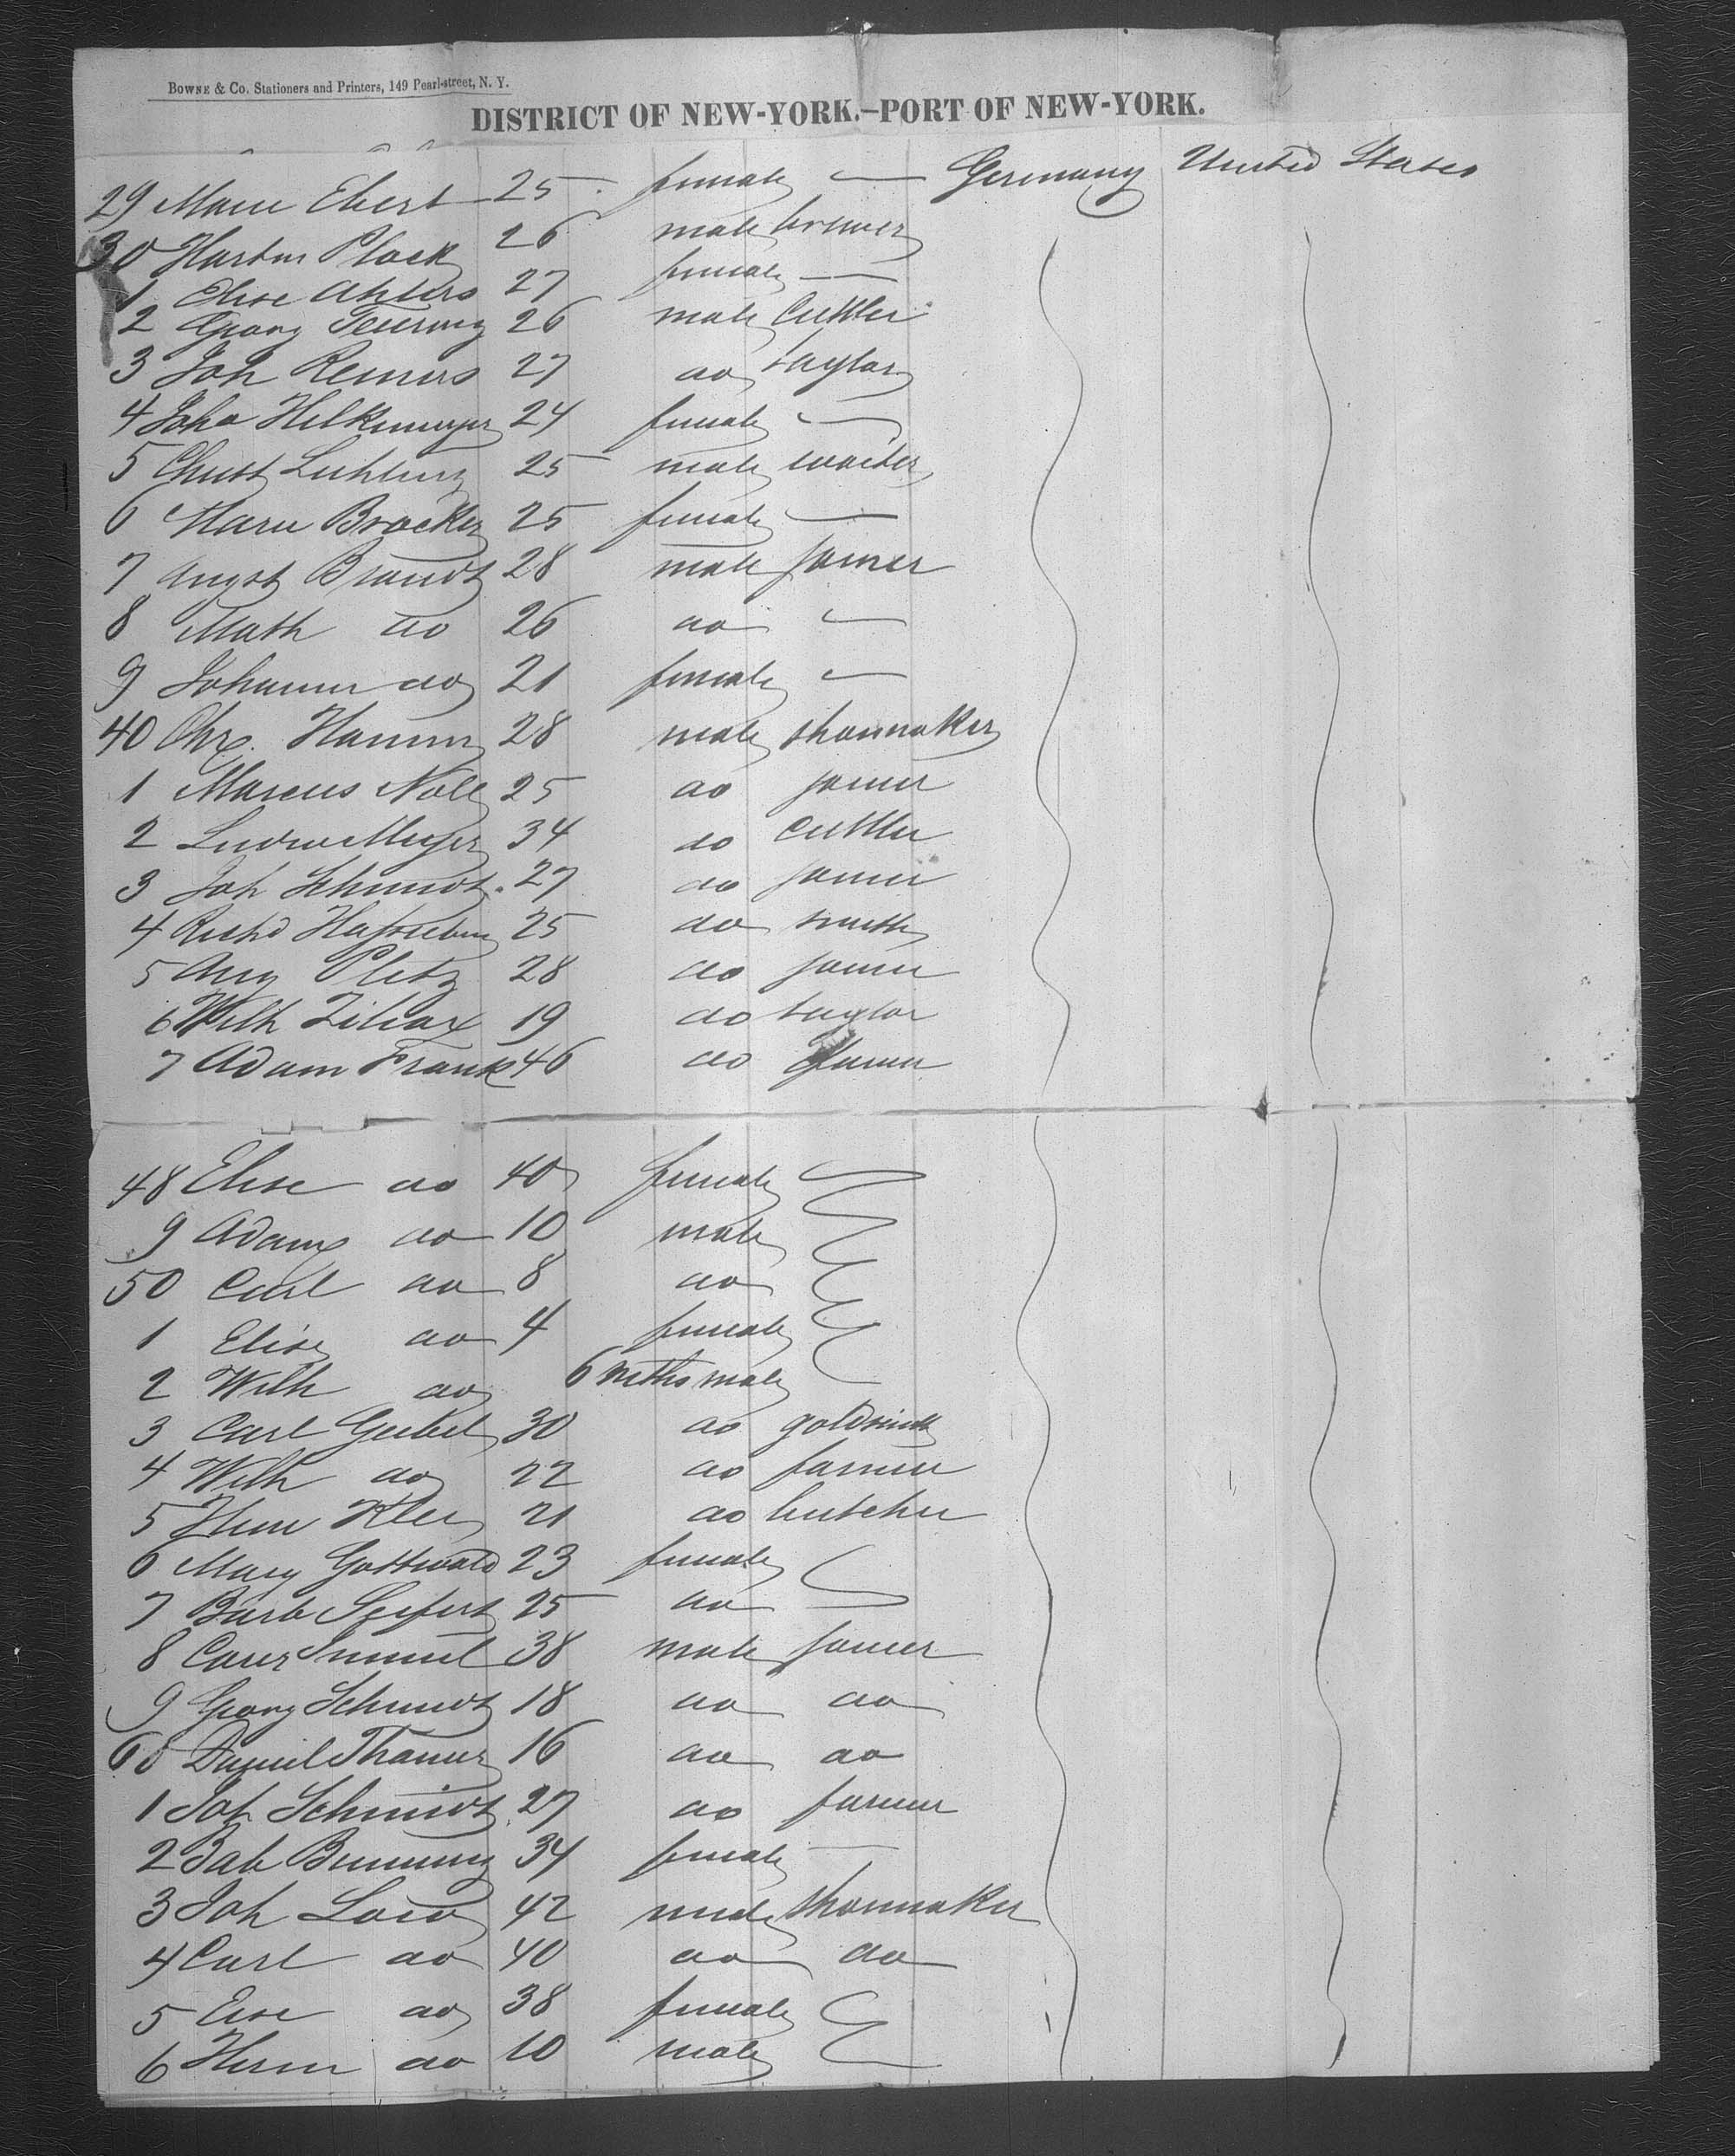 BOWNE & Co. Stationers and Printers, 149 Pearl-street, N. Y.
DISTRICT OF NEW-YORK.–PORT OF NEW-YORK.
29 Marie Ebert 25 female — Germany United States
30 Plock 26 male brewer
1 Elise Ahlers 27 female —
2 Georg 26 male Cuttler
3 Joh Remers 27 do taylor
4 24 female —
5 Christ 25 male waiter
6 Marie Brocker 25 female —
7 August Brandt 28 male joiner
8 Math do 26 do —
9 Johanna do 21 female —
40 Chr. Hamm 28 male shoemaker
1 Marcus Noll 25 do joiner
2 Ludw Meyer 34 do Cuttler
3 Joh Schmidt 27 do joiner
4 Richd 25 do smith
5 Aug Pletz 28 do joiner
6 Wilh Zilcax 19 do taylor
7 Adam Frank 46 do farmer
48 Elise do 40 female
9 Adam do 10 male
50 Carl do 8 do
1 Elise do 4 female
2 Wilh do 6 mths male
3 Carl Geibel 30 do goldsmith
4 Wilh do 22 do farmer
5 Klee 21 do butcher
6 Mary Gottwald 23 female
7 Barb Seifert 25 do
8 38 male joiner
9 Georg Schmidt 18 do do
60 Daniel 16 do do
1 Joh Schmidt 27 do farmer
2 Bab 34 female —
3 Joh 42 male shoemaker
4 Carl do 40 do do
5 do 38 female
6 Herm do 10 male